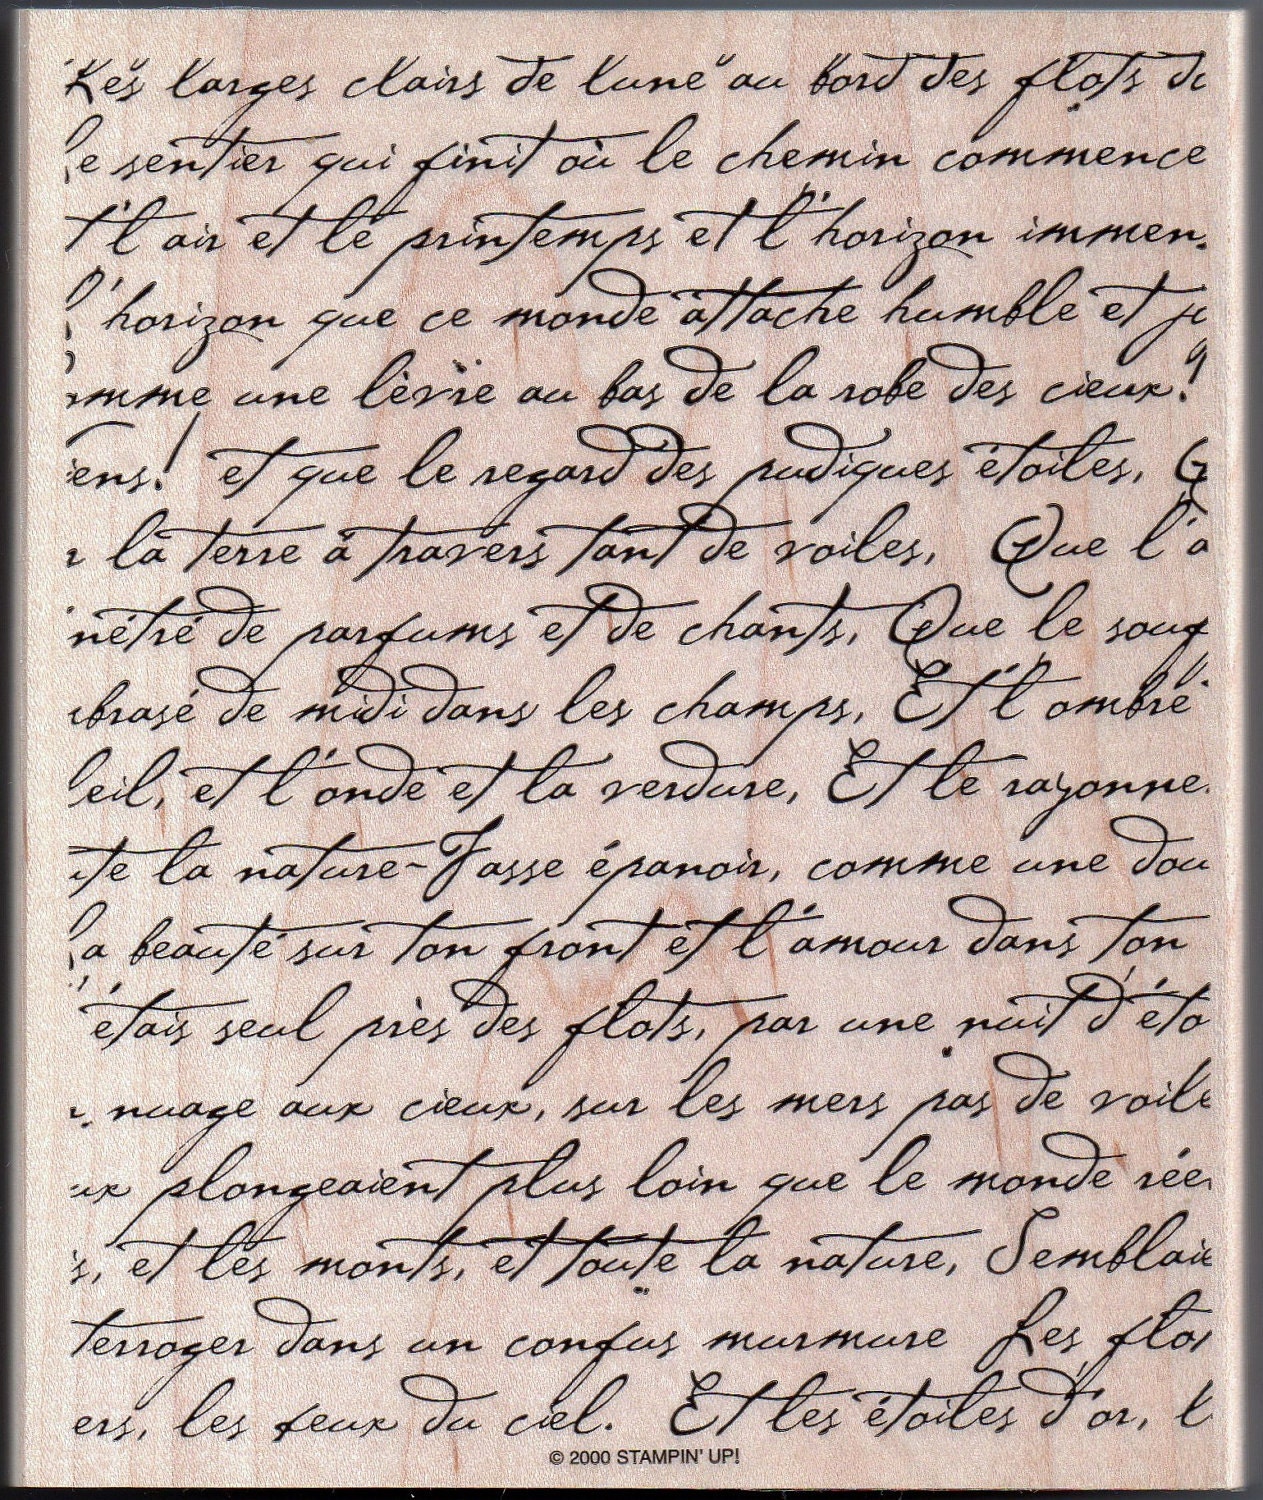 Les larges clairs de lune au bord des flots d
le sentier qui finit où le chemin commence
t l'air et le printemps et l'horizon immen
l'horizon que ce monde attache humble et jo
mme une lèvre au bas de la robe des cieux!
iens! et que le regard des pudiques étoiles, Q
r la terre à travers tant de voiles, Que l'a
nétré de parfums et de chants, Que le souf
brasé de midi dans les champs, Et l'ombre
leil, et l'onde et la verdure, Et le rayonne
te la nature-Fasse épanoir, comme une dou
la beauté sur ton front et l'amour dans ton
étais seul près des flots, par une nuit d'éto
nuage aux cieux, sur les mers pas de voile
ux plongeaient plus loin que le monde rée
s, et les monts, et toute la nature, Semblaie
terroger dans un confus murmure Les flo
ers, les feux du ciel. Et les étoiles d'or, l
© 2000 STAMPIN' UP!